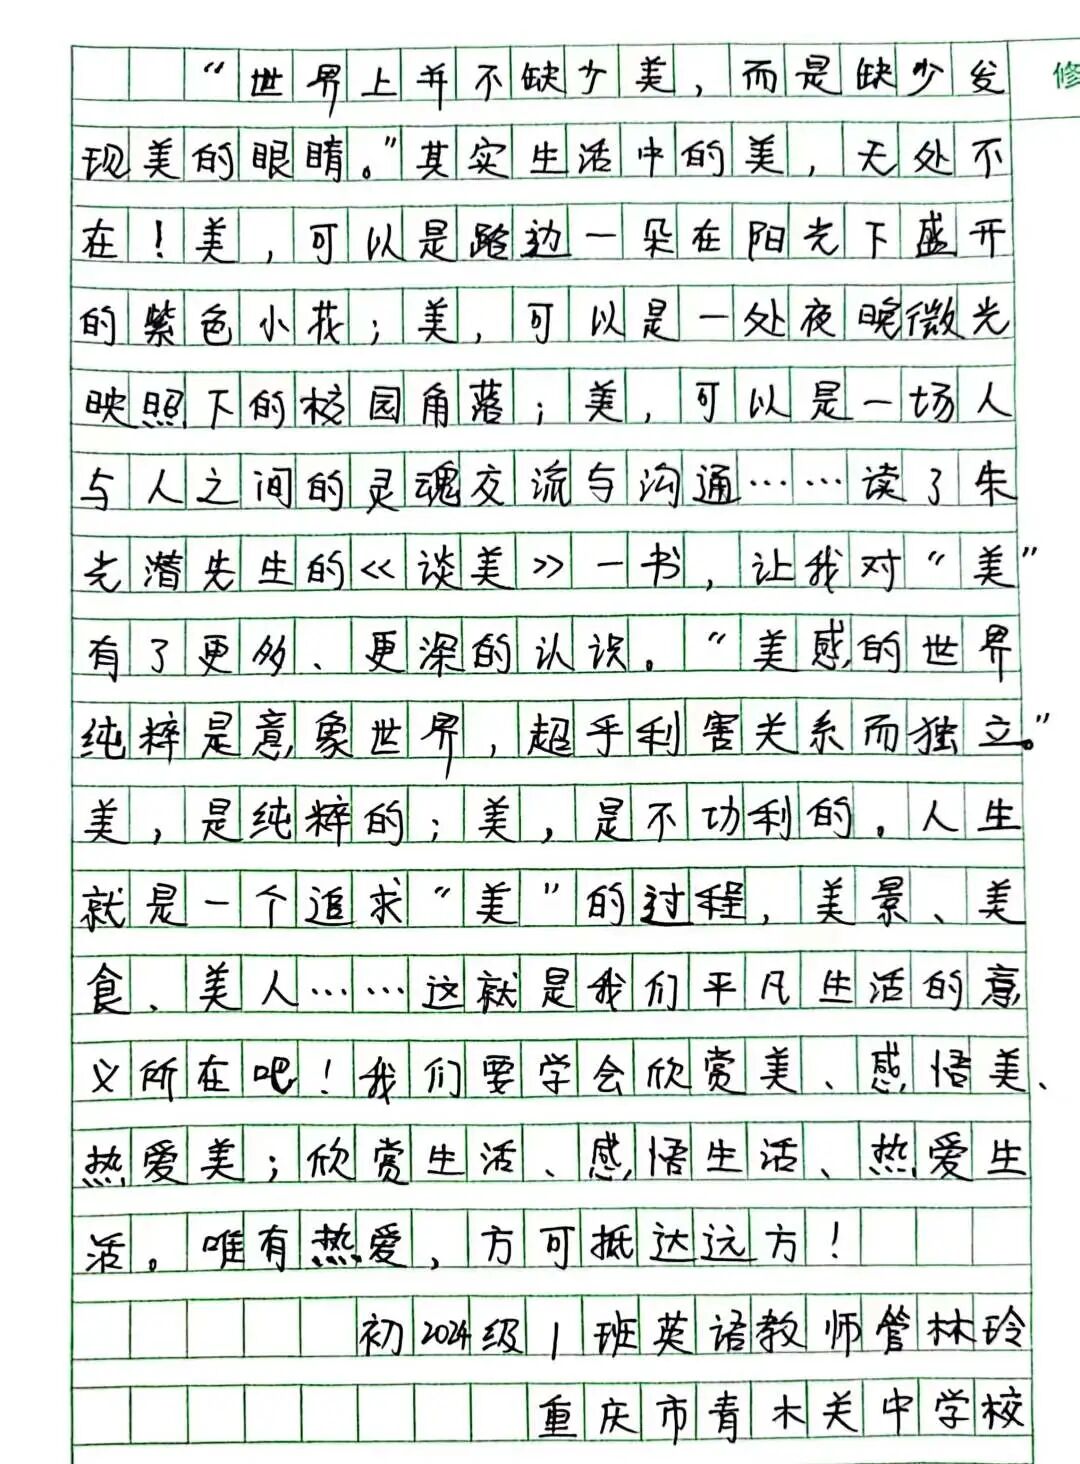 “世界上并不缺少美，而是缺少发
修
现美的眼睛。”其实生活中的美，无处不
在！美，可以是路边一朵在阳光下盛开
的紫色小花；美，可以是一处夜晚微光
映照下的校园角落；美，可以是一场人
与人之间的灵魂交流与沟通……读了朱
光潜先生的《谈美》一书，让我对“美”
有了更多、更深的认识。“美感的世界
纯粹是意象世界，超乎利害关系而独立。”
美，是纯粹的；美，是不功利的。人生
就是一个追求“美”的过程，美景、美
食、美人……这就是我们平凡生活的意
义所在吧！我们要学会欣赏美、感悟美、
热爱美；欣赏生活、感悟生活、热爱生
活。唯有热爱，方可抵达远方！
初2024级1班英语教师管林玲
重庆市青木关中学校